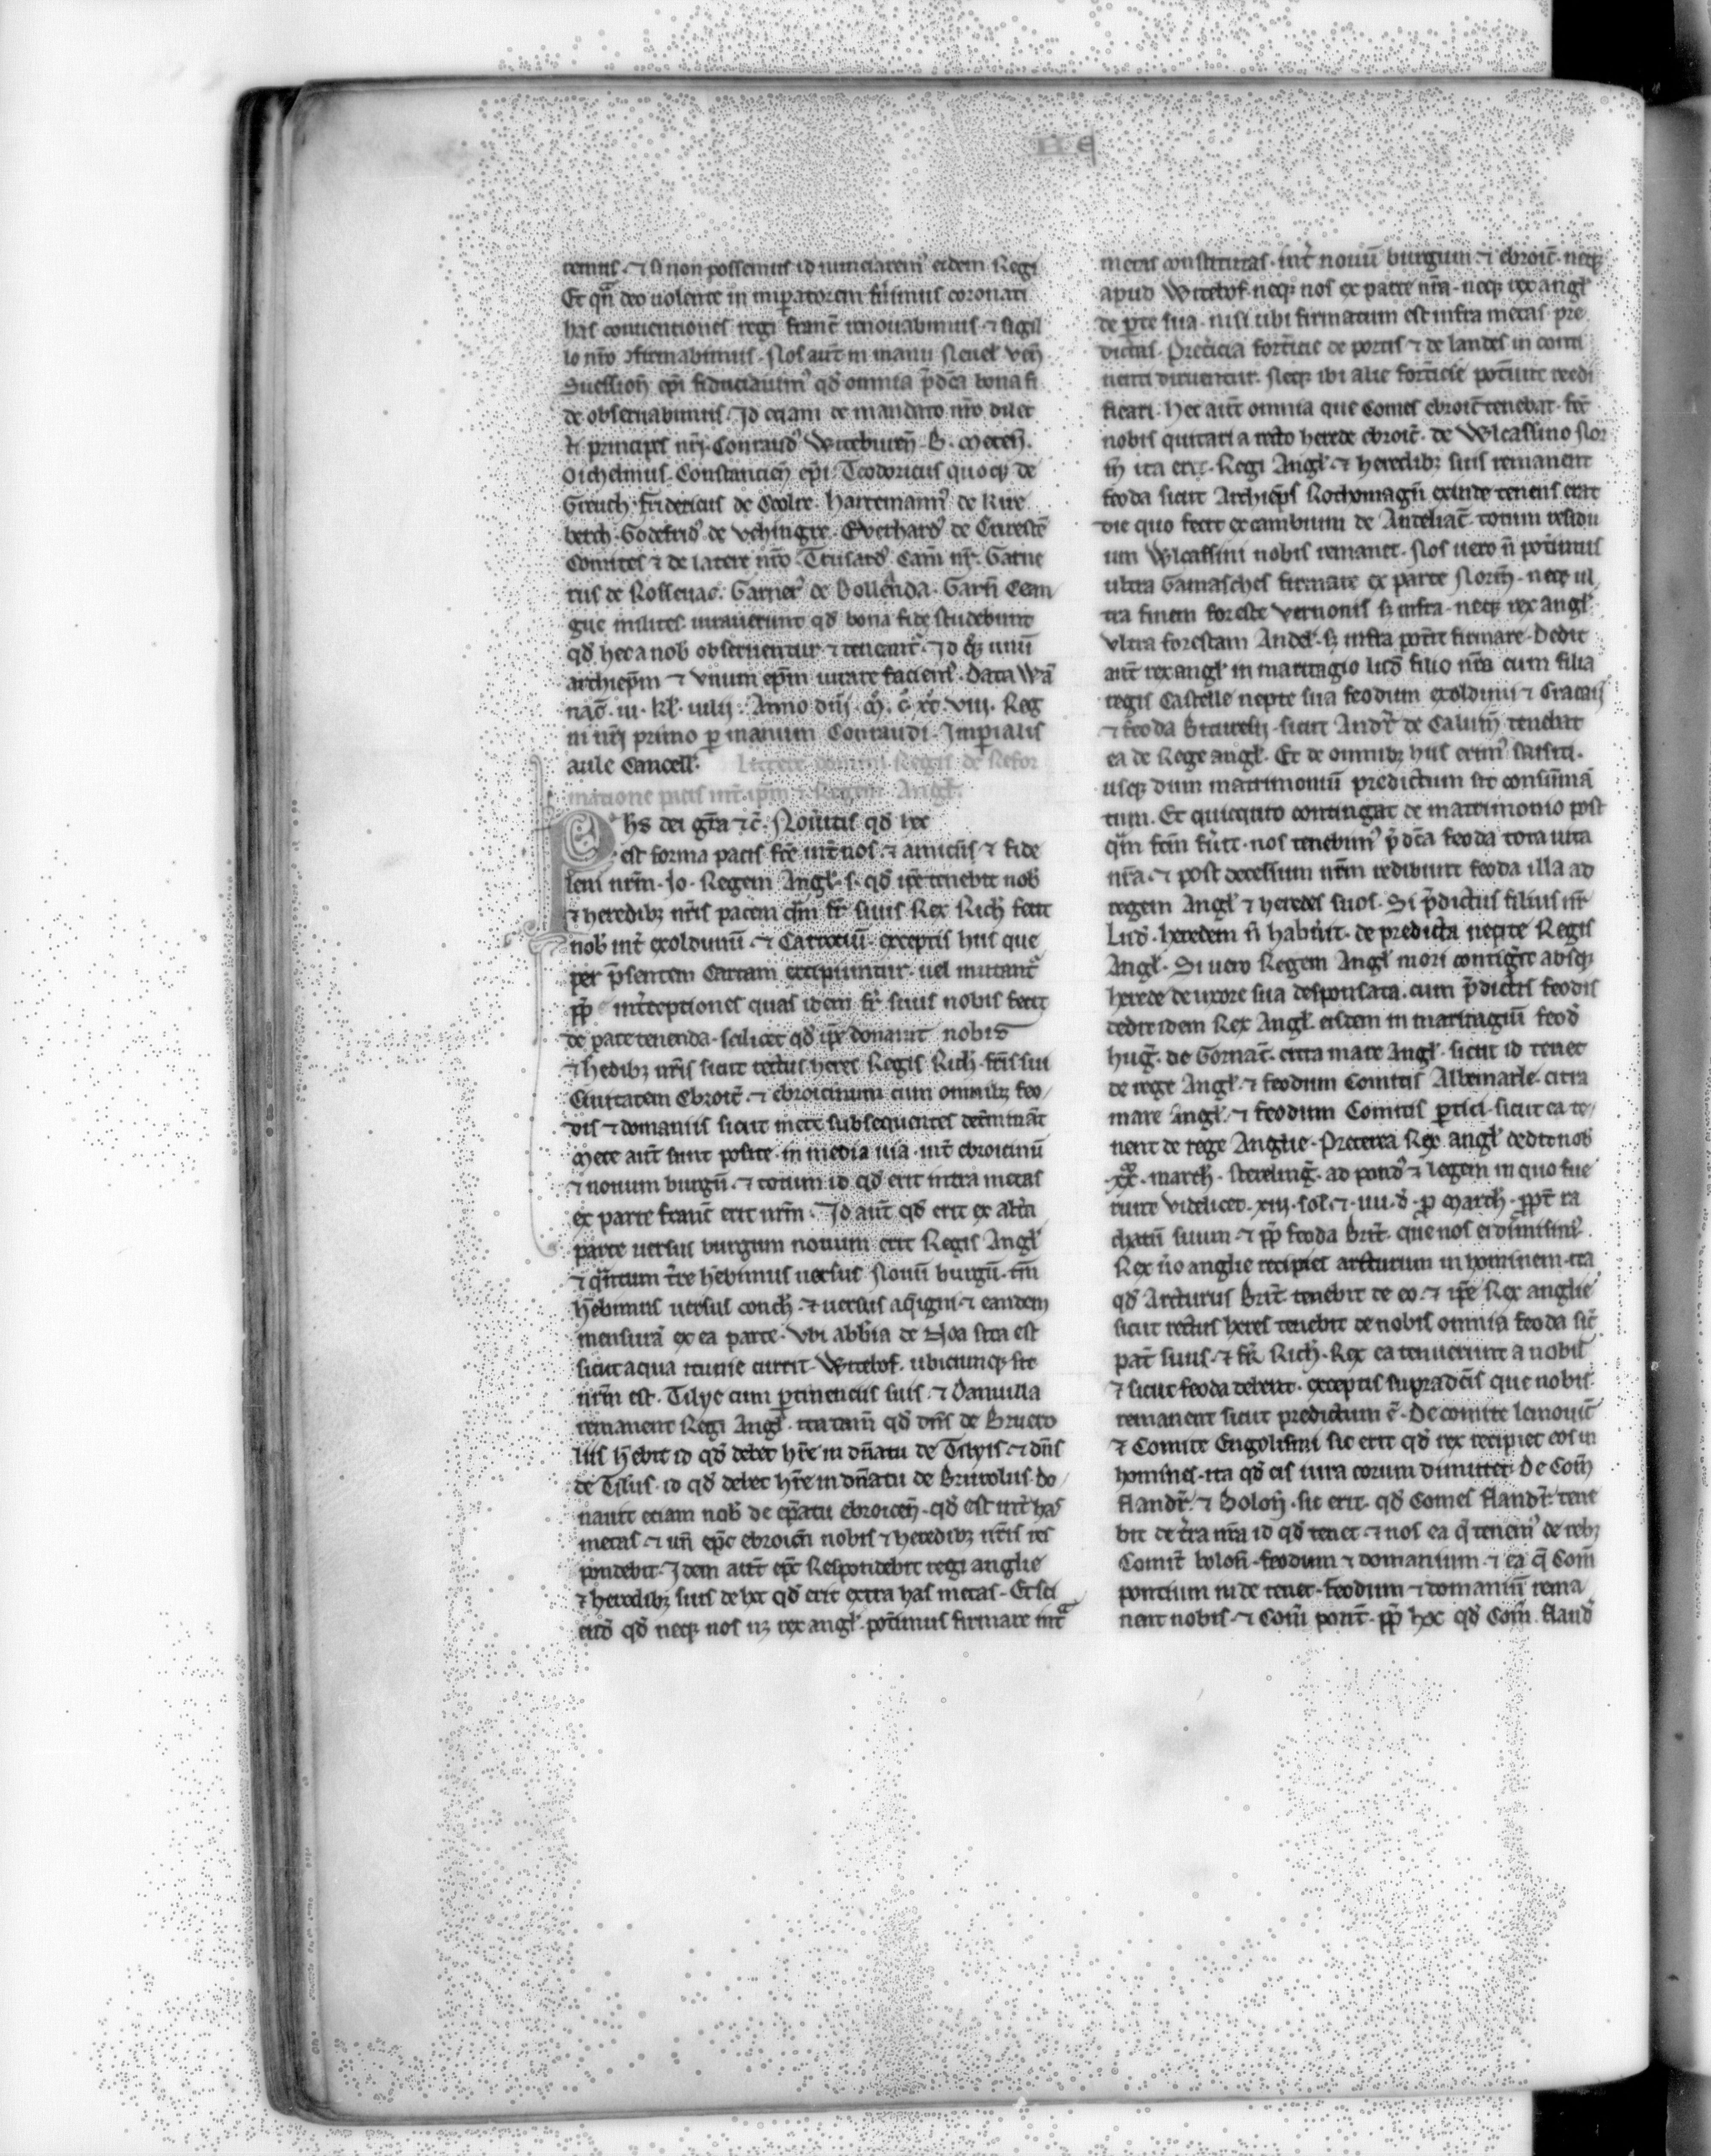 temus. ⁊ si non possemus id nunciarem᷒ eidem Regi
Et qn̄ deo uolente in imꝑatorem fu̾imus coronati
has conuentiones regi franc̄ renouabimus. ⁊ sigil
lo nr̄o ꝯfirmabimus. Nos aut̄ in manu Neuel ven̄
Suession̄ ep̄i fiduciauim᷒ qd̄ omnia p̄dc̄a bona fi
de obseruabimus. Id eciam de mandato nr̄o dilec
ti principes nr̄j. Conraud᷒ Wirceburen̄. B. Meten̄.
Constancien̄ ep̄i. Teodoricus quoqꝫ de
Fridericus de Hartemann᷒ de Kire
berch. Godefrid᷒ de Vehingre. Euerhard᷒ de
Comites ⁊ de latere nr̄o. Trusard᷒ Cam̄ nr̄. Garne
rus de Rossenac. Garner᷒ de Bollēnda. Garn̄
gue milites iurauerunt qd̄ bona fide studebunt
qd̄ hec a nob̄ obseruentur ⁊ teneant᷒. Id qꝫ unū
archiep̄m ⁊ vnum ep̄m iurare faciem᷒. Data Wā
nac̄. iii. kl̄. iulij. Anno dn̄j. M̊. c̊. xc̊. viii. Reg
ni nr̄j primo ꝑ manum Conraudi. Imꝑialis
aule Cancell̄. Littere domini Regis de Refor
matione pacis int̄ ip̄m ⁊ Regem Angl̄.
Phs dei gr̄a ⁊c̄. Nou̾itis qd̄ hec
est forma pacis fc̄e int̄ nos. ⁊ amicū ⁊ fide
lem nr̄m. Jo. Regem Angl̄. s. qd̄ ip̄e tenebit nob̄
⁊ heredibꝫ nr̄is pacem qm̄ fr̄ suus Rex Rich̄ fecit
nob̄ int̄ exoldunū. ⁊ Carrociū. exceptis hiis que
per p̄sentem Cartam excipiuntur. uel mutant᷒
pp̄ int̾ceptiones quas idem fr̄ suus nobis fecit
de pace tenenda. scilicet qd̄ ip̄e donauit nobis
⁊ hedibꝫ nr̄is sicut rectus heres Regis Rich̄. fr̄is sui
Ciuitatem Ebroic̄. ⁊ ebroicinum cum omnibꝫ feo/
dis ⁊ domaniis sicut mete subsequentes det̾mināt
Mete aut̄ sunt posite. in media uia. int̄ ebroicinū
⁊ nouum burgū. ⁊ totum id qd̄ erit intra metas
ex parte franc̄ erit nr̄m. Id aut̄ qd̄ erit ex alt̾a
parte uersus burgum nouum erit Regis Angl̄
⁊ qn̄tum t̾re hēbimus uersus Nouū burgū. tm̄
hēbimus uersus conch̄. ⁊ uersus aq̄igni ⁊ eandem
mensurā ex ea parte. vbi abb̄ia de Noa sita est
sicut aqua itunie currit. Witebof. ubicunqꝫ sit
nr̄m est. Tilye cum ꝑtinenciis suis. ⁊ Danuilla
remanent Regi Angl̄. ita tam̄ qd̄ dn̄s de Brueco
lus hēbit id qd̄ debet hr̄e in dn̄atu de Tilyis ⁊ dn̄s
de Tilius. id qd̄ debet hr̄e in dn̄atu de Briuolus. Do/
nauit eciam nob̄ de ep̄atu ebroicen̄. qd̄ est int̾ has
metas. ⁊ un̄ ep̄c ebroicn̄ nobis ⁊ heredibꝫ nr̄is res
pondebit. Idem aut̄ ep̄c Respondebit regi anglie
⁊ heredibꝫ suis de hoc qd̄ erit extra has metas. Et sci
end̄ qd̄ neqꝫ nos nꝫ rex angl̄. pot̾imus firmare int̄
metas constitutas. int̾ nouū burgum. ⁊ ebroic̄. neqꝫ
apud Witebof. neqꝫ nos ex parte nr̄a. neqꝫ rex angl̄
de ꝑte sua. nisi ubi firmatum est infra metas pre
dictas. Pret̾ea fort̾icie de portis ⁊ de landes in conti
nenti diruentur. Neqꝫ ibi alie fort̾icie pot̾unt reedi
ficari. Hec aut̄ omnia que Comes ebroic̄ tenebat. fec̄
nobis quitari a recto herede ebroic̄. de Wlcassino Nor
m̄ ita erit. Regi Angl̄. ⁊ heredibꝫ suis remanent
feoda sicut Archiep̄s Rothomagn̄ exinde tenens erat
die quo fecit excambium de Andeliac̄. totum residu
um Wlcassini nobis remanet. Nos uero n̄ pot̾imus
ultra Gamaschel firmare ex parte Norm̄. neqꝫ ul
tra finem foreste Vernonis. sꝫ infra. neqꝫ rex angl̄.
vltra forestam Andel̄. sꝫ infra pot̾it firmare. Dedit
aut̄ rex angl̄ in maritagio lud̄ filio nr̄o cum filia
regis Castelle nepte sua feodum exolduni ⁊ Cracaij
⁊ feoda Bituresij. sicut Andr̄ de Caluin̄ tenebat
ea de Rege angl̄. Et de omnibꝫ hiis erim᷒ saisiti.
usqꝫ dum matrimoniū predictum sit consūmā
tum. Et quicquid contingat de matrimonio post
qm̄ fc̄m fu̾it. nos tenebim᷒ p̄dc̄a feoda tota uita
nr̄a. ⁊ post decessum nr̄m redibunt feoda illa ad
regem Angl̄ ⁊ heredes suos. Si p̄dictus filius nr̄
Lud̄. heredem n̄ habu̾it. de predicta nepte Regis
Angl̄. Si uero Regem Angl̄ mori contig̾it absqꝫ
herede de uxore sua desponsata. cum p̄dictis feodis
dedit idem Rex Angl̄. eisdem in maritagiū feod̄
hug̾. de Gornac̄. citra mare Angl̄. sicut id tenet
de rege Angl̄. ⁊ feodum Comitis Albemarle. citra
mare angl̄. ⁊ feodum Comitis ꝑtici. sicut ea te/
nent de rege Anglie. Preterea Rex angl̄ dedit nob̄
xx̊. march̄. sterling̾. ad pond᷒ ⁊ legem in quo fue
runt videlicet. xiij. sol. ⁊ iiii. d̄. ꝑ March̄. ppt̾ ra
chatū suum. ⁊ pp̄ feoda Brit̾. que nos ei dimisim᷒.
Rex u̾o anglie recipiet arcturum in hominem. ita
qd̄ Arcturus Brit̾ tenebit de eo. ⁊ ip̄e Rex anglie
sicut rectus heres tenebit de nobis omnia feoda sic̄
pat̾ suus. ⁊ fr̄ Rich̄. Rex ea tenuerunt a nobis
⁊ sicut feoda debent. exceptis supradc̄is que nobis
remanent sicut predictum ē. De comite lemouic̄
⁊ Comite Engolismi sic erit qd̄ rex recipiet eos in
homines. ita qd̄ eis iura eorum dimittet. De Com̄
flandr̄. ⁊ Bolon̄. sic erit. qd̄ Comes flandr̄. tene
bit de t̾ra nr̄a id qd̄ tenet. ⁊ nos ea q̄ tenem᷒ de rebꝫ
Comit̄ bolon̄. feodum ⁊ domanium. ⁊ ea q̄ Com̄
pontium inde tenet. feodum ⁊ domaniū rema
nent nobis. ⁊ Com̄ pont̾. pp̄ hoc qd̄ Com̄. fland̄